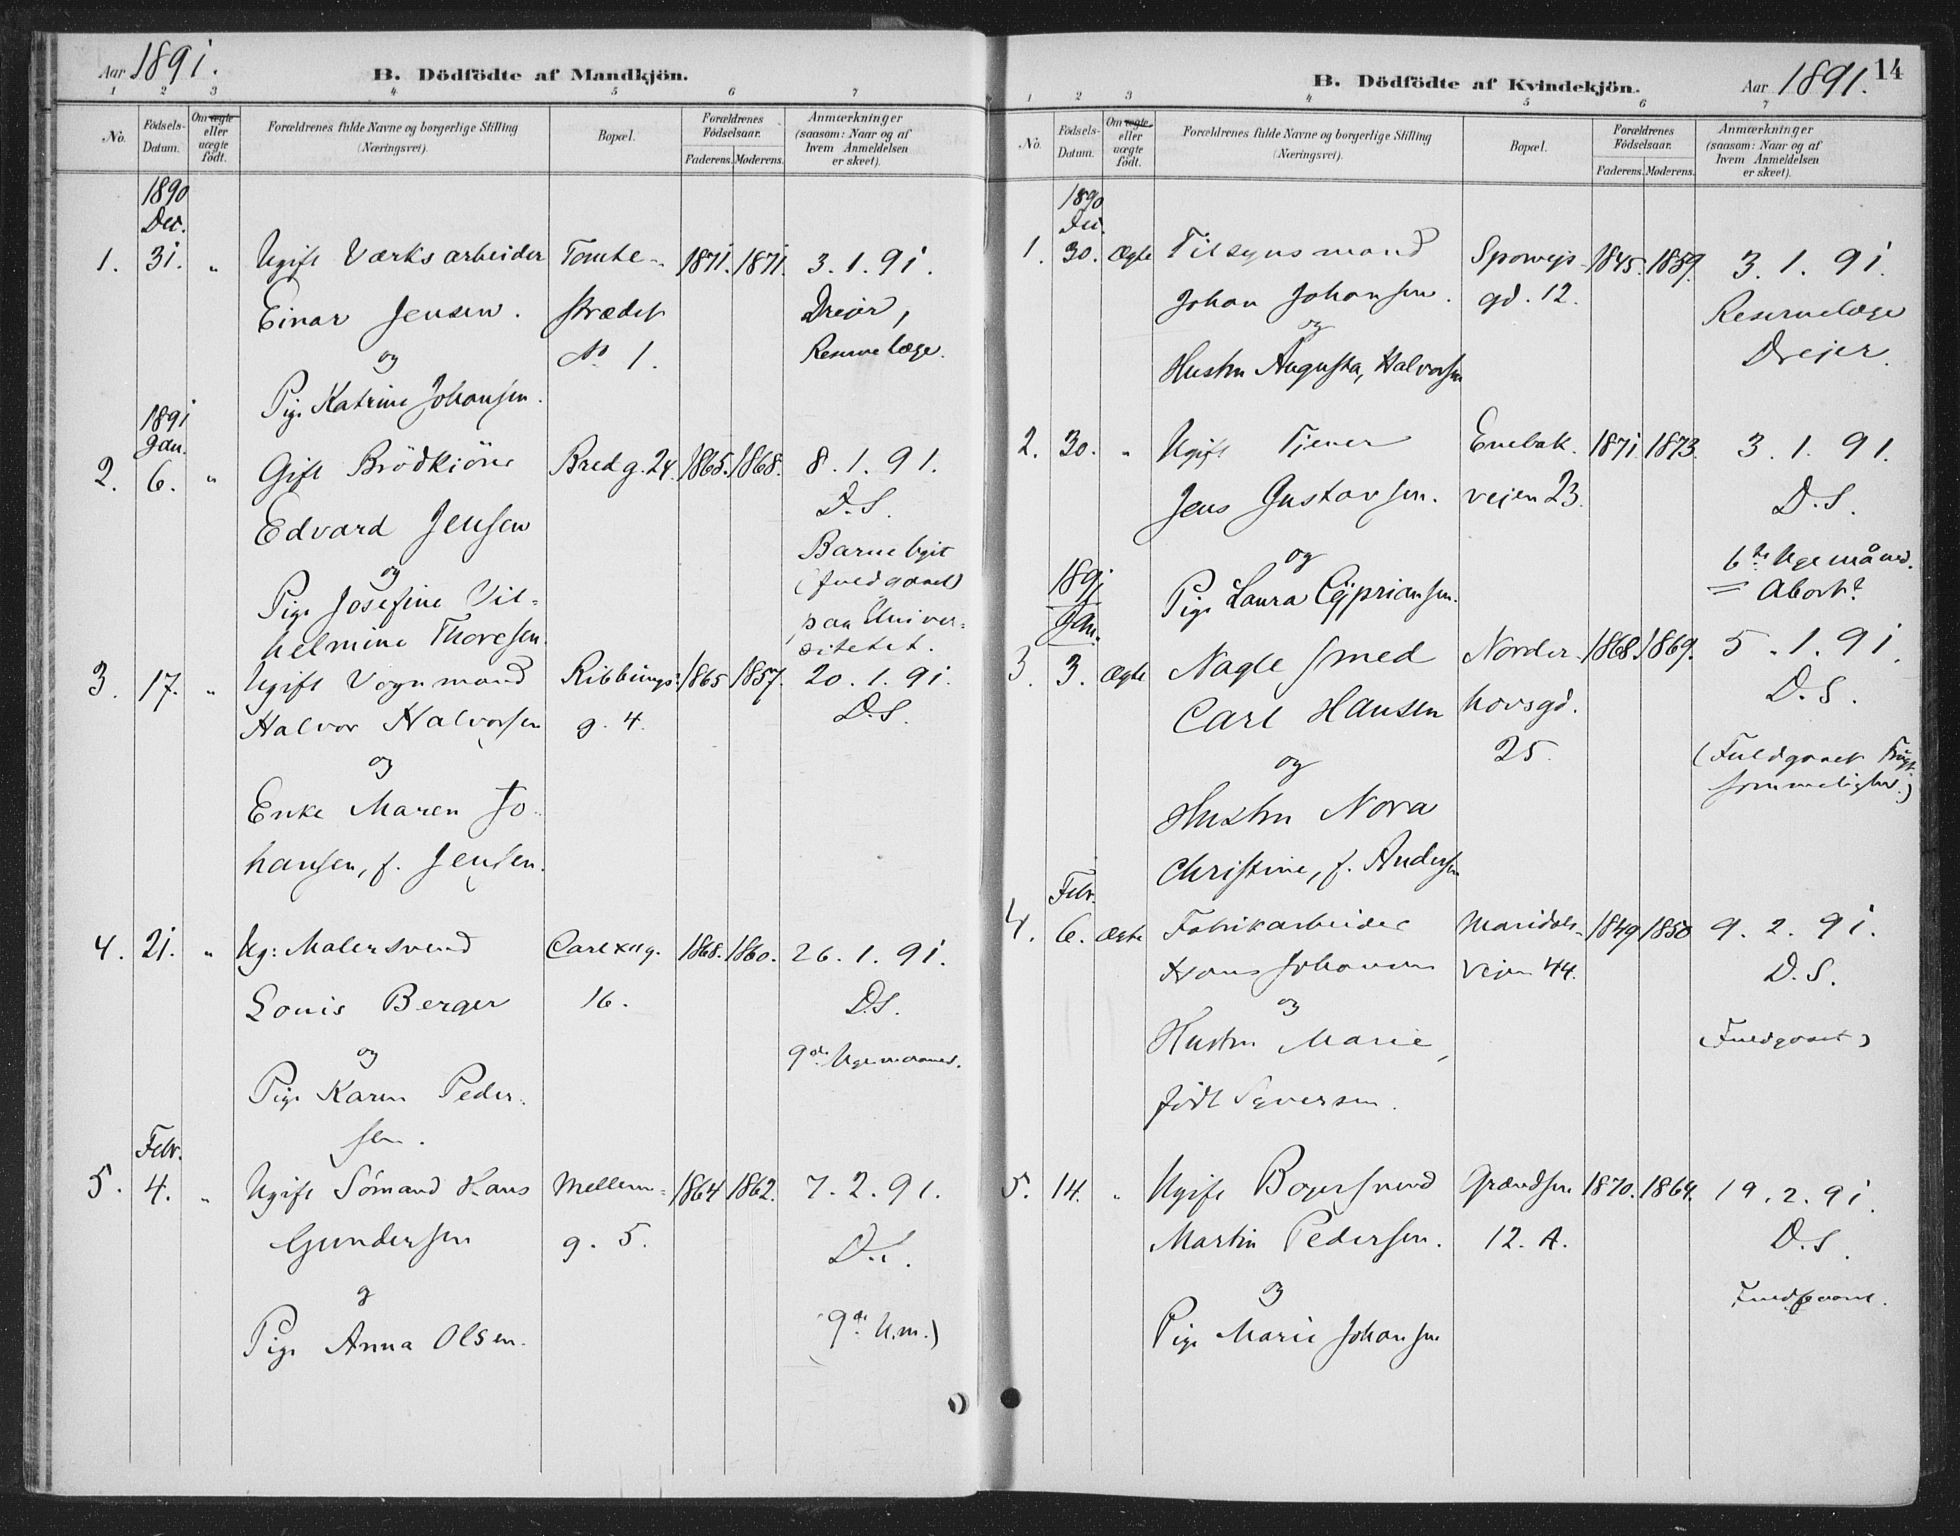 Aar 1891.
B. Dödfödte af Mandkjön.
1 2 3 4 5 6 7
No.
Födsels-
Datum.
Om ægte
eller
uægte
födt.
Forældrenes fulde Navne og borgerlige Stilling
(Næringsvei).
Bopæl.
Forældrenes
Födselsaar.
Faderens. Moderens.
Anmærkninger
(saasom: Naar og af
hvem Anmeldelsen
er skeet).
1890
Dec.
1. 31. " Ugift Værksarbeider Tomte- 1871. 1871. 3.1.91.
Einar Jensen. strædet Dreier,
og No 1. Reservelæge.
Pige Katrine Johansen.
1891
Jan.
2. 6. " Gift Brödkjörer Bredg. 24. 1865. 1868. 8.1.91.
Edvard Jensen D.S.
og Barneliget
Pige Josefine Vil- (fuldgaaet)
helmine Thoresen. paa Univer-
sitetet.
3. 17. " Ugift Vognmand Ribbungs- 1865 1857. 20.1.91.
Halvor Halvorsen g. 4. D.S.
og
Enke Maren Jo-
hansen, f. Jensen.
4. 21. " Ug: Malersvend Carl XIIg. 1868. 1860. 26.1.91.
Louis Berger 16. D.S.
og 9de Ugemaaned.
Pige Karen Peder-
sen.
Febr.
5. 4. " Ugift Sömand Hans Mellem- 1864 1862. 7.2.91.
Gundersen g. 5. D.S.
og
Pige Anna Olsen. (9de U.m.)
14
B. Dödfödte af Kvindekjön.
Aar 1891.
1 2 3 4 5 6 7
No.
Födsels-
Datum.
Om ægte
eller
uægte
födt.
Forældrenes fulde Navne og borgerlige Stilling
(Næringsvei).
Bopæl.
Forældrenes
Födselsaar.
Faderens. Moderens.
Anmærkninger
(saasom: Naar og af
hvem Anmeldelsen
er skeet).
1890
Dec.
1. 30. Ægte Tilsynsmand Sporvejs- 1845. 1859. 3.1.91.
Johan Johansen. gd. 12. Reservelæge
og Drejer.
Hustru Augusta, Halvorsen
2. 30. " Ugift Tjener Enebak- 1871. 1873. 3.1.91.
Jens Gustavsen. vejen 23. D.S.
og 6te Ugemåned.
Pige Laura Cypriansen. = Abort?
1891
Jan.
3. 3. Ægte Naglesmed Norder- 1868. 1869. 5.1.91.
Carl Hansen hovsgd. D.S.
og 25. (Fuldgaaet Frugt-
Hustru Nora sommelighed.)
Christine, f. Andersen
Febr.
4. 6. Ægte Fabrikarbeider Maridals- 1849 1850 9.2.91.
Hans Johansen Vejen 44. D.S.
og (Fuldgaaet)
Hustru Marie,
födt Syversen.
5. 14. " Ugift Bagersvend Grændsen 1870. 1864. 19.2.91.
Martin Pedersen. 12. A. D.S.
og Fuldgaaet.
Pige Marie Johansen